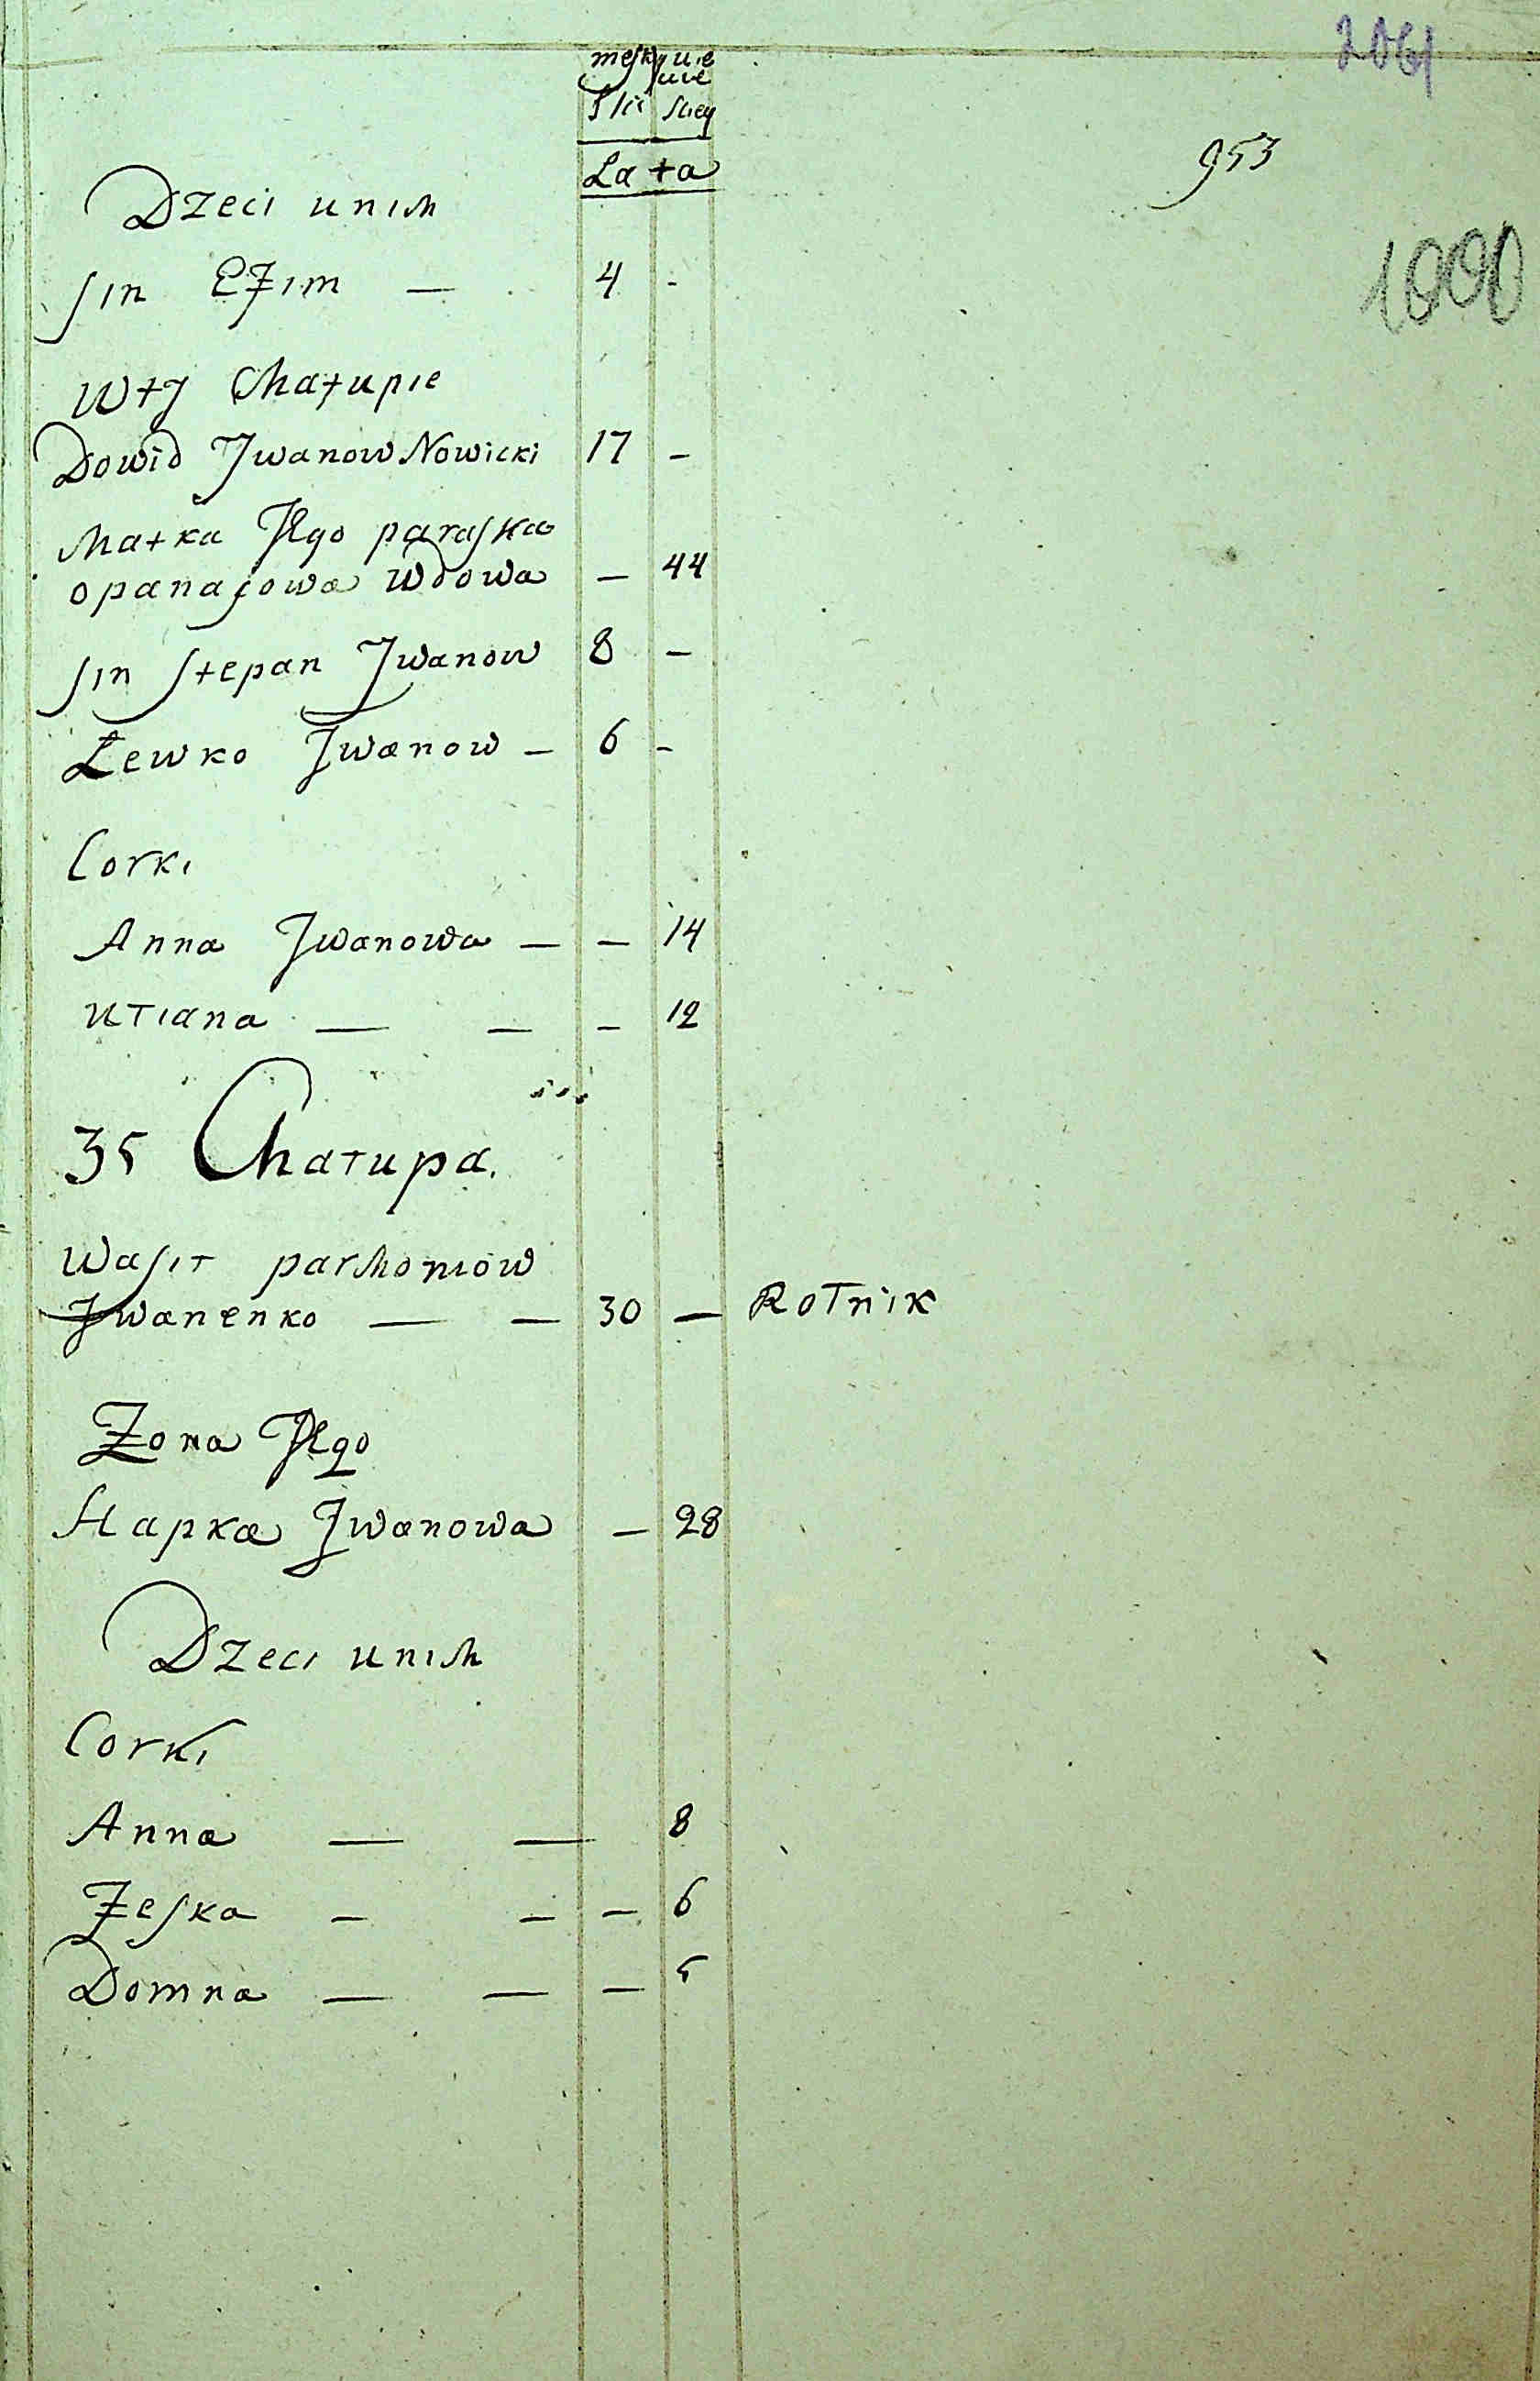 2061
953
1000
Lata
Dzeci unich
Sin Efim — 4 -
W ty Chałupie
Dowid Jwanow Nowicki 17 -
Matka Jego paraska
opanasowa Wdowa — 44
Sin Stepan Jwanow 8 -
Lewko Jwanow - 6 -
Corki
Anna Jwanowa — — 14
Uliana — — - 12
35 Chałupa.
Wasil parchomow
Jwanenko — — 30 — Rolnik
Zona Jego
Hapka Jwanowa — 28
Dzeci unich
Corki
Anna — — 8
Feska - - - 6
Domna — — — 5